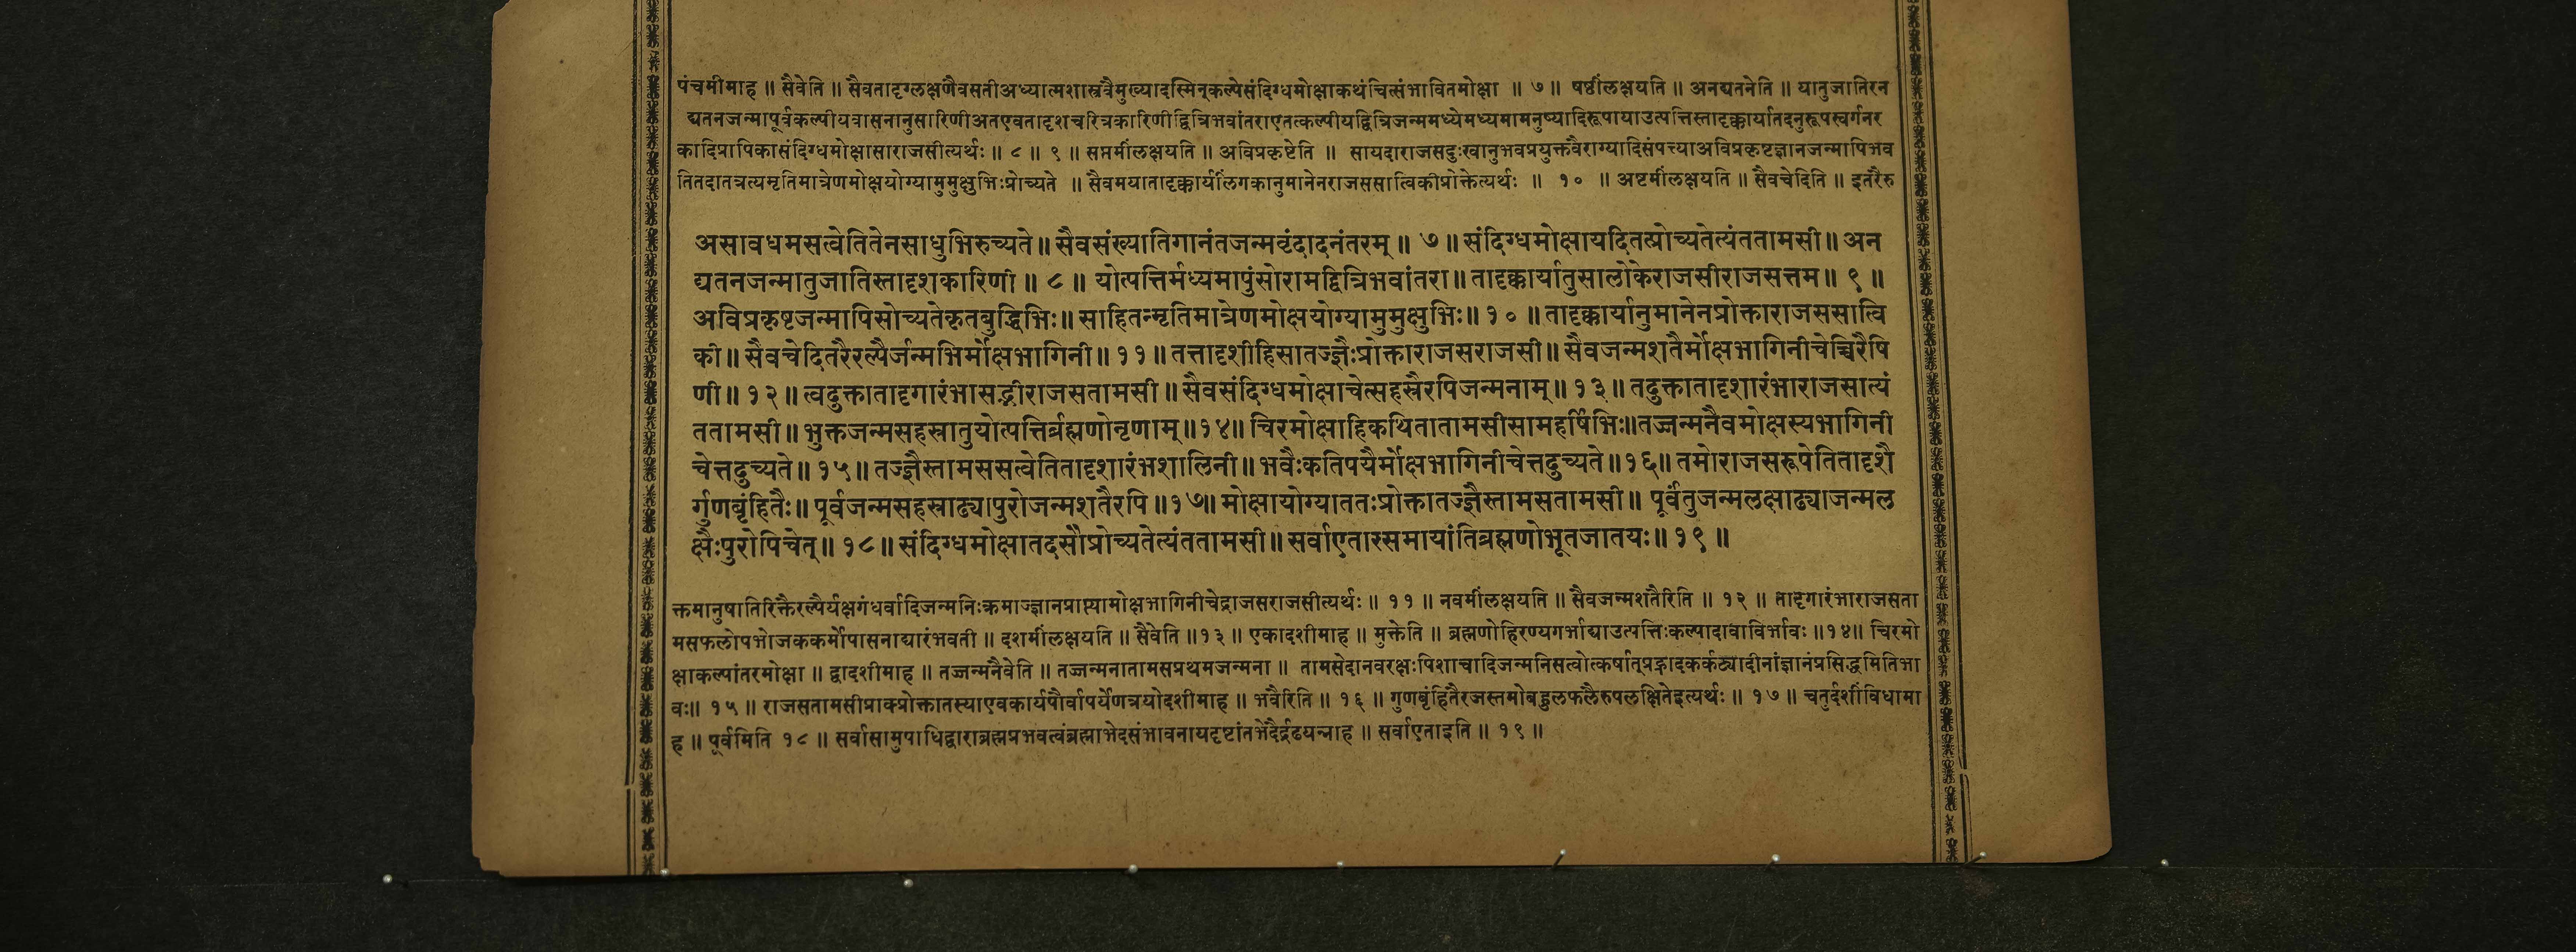 पंचमीमाह ॥ सैवेति ॥ सैवतादृग्लक्षणैवसतीअध्यात्मशास्त्रवैमुख्यादस्मिन्कल्पेसंदिग्धमोक्षाकथंचित्संभावितमोक्षा ॥ ७ ॥ षष्ठींलक्षयति ॥ अनद्यतनेति ॥ यातुजातिरन
द्यतनजन्मापूर्वकल्पीयवासनानुसारिणीअतएवतादृशचरित्रकारिणीद्वित्रिभवांतराएतत्कल्पीयद्वित्रिजन्ममध्येमध्यमामनुष्यादिरूपायाउत्पत्तिस्तादृक्कार्यातदनुरूपस्वर्गनर
कादिप्रापिकासंदिग्धमोक्षासाराजसीत्यर्थः ॥ ८ ॥ ९ ॥ सप्तमींलक्षयति ॥ अविप्रकृष्टेति ॥ सायदाराजसदुःखानुभवप्रयुक्तवैराग्यादिसंपत्त्याअविप्रकृष्टज्ञानजन्मापिभव
तितदातत्रत्यमृतिमात्रेणमोक्षयोग्यामुमुक्षुभिःप्रोच्यते ॥ सैवमयातादृक्कार्यलिंगकानुमानेनराजससात्विकीप्रोक्तेत्यर्थः ॥ १० ॥ अष्टमींलक्षयति ॥ सैवचेदिति ॥ इतरैरु
असावधमसत्वेतितेनसाधुभिरुच्यते॥ सैवसंख्यातिगानंतजन्मवृंदादनंतरम् ॥ ७ ॥ संदिग्धमोक्षायदितत्प्रोच्यतेत्यंततामसी॥ अन
द्यतनजन्मातुजातिस्तादृशकारिणी ॥ ८ ॥ योत्पत्तिर्मध्यमापुंसोरामद्वित्रिभवांतरा॥ तादृक्कार्यातुसालोकेराजसीराजसत्तम॥ ९ ॥
अविप्रकृष्टजन्मापिसोच्यतेकृतबुद्धिभिः॥ साहितन्मृतिमात्रेणमोक्षयोग्यामुमुक्षुभिः॥ १० ॥ तादृक्कार्यानुमानेनप्रोक्ताराजससात्वि
की॥ सैवचेदितरैरल्पैर्जन्मभिर्मोक्षभागिनी॥ ११ ॥ तत्तादृशीहिसातज्ज्ञैःप्रोक्ताराजसराजसी॥ सैवजन्मशतैर्मोक्षभागिनीचेच्चिरैषि
णी॥ १२ ॥ त्वदुक्तातादृगारंभासद्भीराजसतामसी॥ सैवसंदिग्धमोक्षाचेत्सहस्रैरपिजन्मनाम्॥ १३ ॥ तदुक्तातादृशारंभाराजसात्यं
ततामसी॥ भुक्तजन्मसहस्रातुयोत्पत्तिर्ब्रह्मणोनृणाम्॥१४॥ चिरमोक्षाहिकथितातामसीसामहर्षिभिः॥तज्जन्मनैवमोक्षस्यभागिनी
चेत्तदुच्यते॥ १५॥ तज्ज्ञैस्तामससत्वेतितादृशारंभशालिनी॥ भवैःकतिपयैर्मोक्षभागिनीचेत्तदुच्यते॥१६॥ तमोराजसरूपेतितादृशै
र्गुणबृंहितैः॥ पूर्वजन्मसहस्राढ्यापुरोजन्मशतैरपि॥१७॥ मोक्षायोग्याततःप्रोक्तातज्ज्ञैस्तामसतामसी॥ पूर्वंतुजन्मलक्षाढ्याजन्मल
क्षैःपुरोपिचेत्॥ १८॥ संदिग्धमोक्षातदसौप्रोच्यतेत्यंततामसी॥ सर्वाएतारसमायांतिब्रह्मणोभूतजातयः॥ १९ ॥
क्तमानुषातिरिक्तैरल्पैर्यक्षगंधर्वादिजन्मनिःक्रमाज्ज्ञानप्राप्त्यामोक्षभागिनीचेद्राजसराजसीत्यर्थः ॥ ११ ॥ नवमींलक्षयति ॥ सैवजन्मशतैरिति ॥ १२ ॥ तादृगारंभाराजसता
मसफलोपभोजककर्मोपासनाद्यारंभवती ॥ दशमींलक्षयति ॥ सैवेति ॥१३ ॥ एकादशीमाह ॥ मुक्तेति ॥ ब्रह्मणोहिरण्यगर्भाद्याउत्पत्तिःकल्पादावाविर्भावः ॥१४॥ चिरमो
क्षाकल्पांतरमोक्षा ॥ द्वादशीमाह ॥ तज्जन्मनैवेति ॥ तज्जन्मनातामसप्रथमजन्मना ॥ तामसेदानवरक्षःपिशाचादिजन्मनिसत्वोत्कर्षात्प्रह्लादकर्कट्यादीनांज्ञानंप्रसिद्धमितिभा
वः॥ १५ ॥ राजसतामसीप्राक्प्रोक्तातस्याएवकार्यपौर्वापर्येणत्रयोदशीमाह ॥ भवैरिति ॥ १६ ॥ गुणबृंहितैरजस्तमोबहुलफलैरुपलक्षितेइत्यर्थः ॥ १७ ॥ चतुर्दशींविधामा
ह ॥ पूर्वमिति १८ ॥ सर्वासामुपाधिद्वाराब्रह्मप्रभवत्वंब्रह्माभेदसंभावनायदृष्टांतभेदैर्द्रढयन्नाह ॥ सर्वाएताइति ॥ १९ ॥